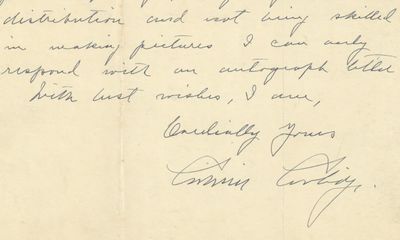 distribution and not being skilled
in making pictures I can only
respond with an autograph letter
With best wishes, I am,
Cordially Yours